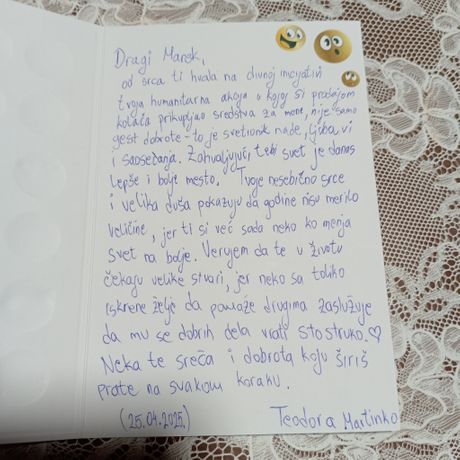 Dragi Marek,
od srca ti hvala na divnoj inicijativi
tvoja humanitarna akcija u kojoj si prodajom
kolača prikupljao sredstva za mene, nije samo
gest dobrote - to je svetionik nade, ljubavi
i saosećanja. Zahvaljujući tebi svet je danas
lepše i bolje mesto. Tvoje nesebično srce
i velika duša pokazuju da godine nisu merilo
veličine, jer ti si već sada neko ko menja
svet na bolje. Verujem da te u životu
čekaju velike stvari, jer neko sa toliko
iskrene želje da pomaže drugima zaslužuje
da mu se dobrih dela vrati stostruko.♡
Neka te sreća i dobrota koju širiš
prate na svakom koraku.
(25.04.2025.) Teodora Martinko